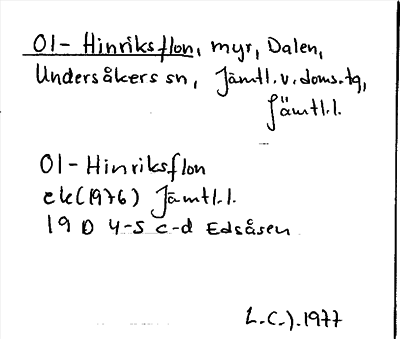 Ol-Hinriksflon, myr, Dalen,
Undersåkers sn, Jämtl.v.doms.tg,
Jämtl.l.
Ol-Hinriksflon
ek(1976) Jämtl.l.
19 D 4-5 c-d Edsåsen
L.C.J.1977